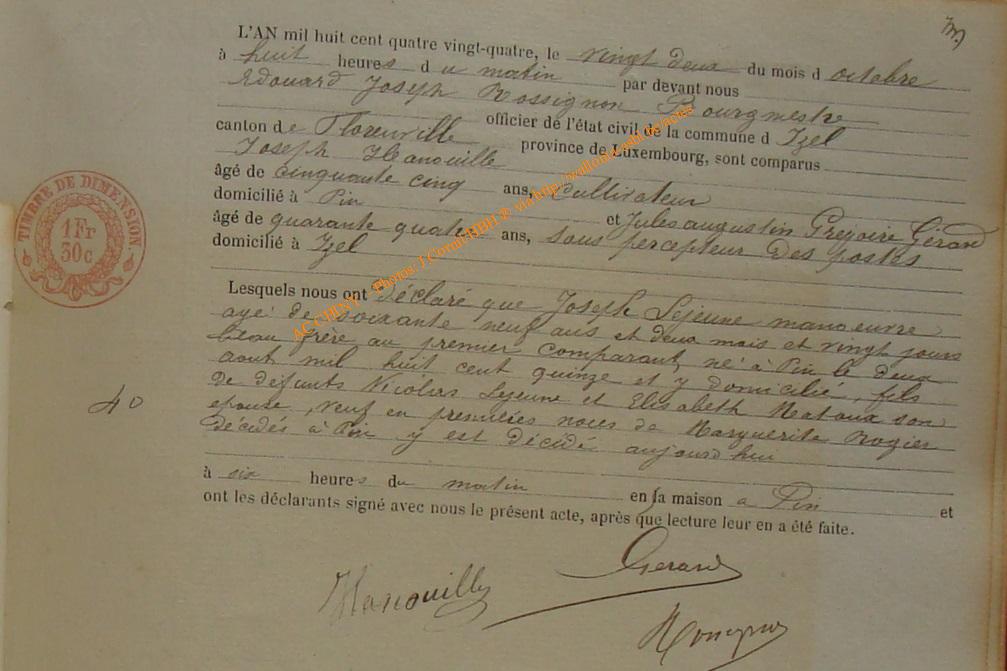 L'AN mil huit cent quatre vingt-quatre, le vingt deux du mois d octobre
à huit heures d u matin par devant nous
Edouard Joseph Rossignon Bourgmestre
officier de l'état civil de la commune d Izel
canton de Florenville province de Luxembourg, sont comparus
Joseph Hanouille
âgé de cinquante cinq ans, cultivateur
domicilié à Pin et Jules augustin Grégoire Gérard
âgé de quarante quatre ans, sous percepteur des postes
domicilié à Izel
Lesquels nous ont déclaré que Joseph Lejeune manoeuvre
agé de soixante neuf ans et deux mois et vingt jours
beau frère au premier comparant, né à Pin le deux
aout mil huit cent quinze et y domicilié, fils
de défunts Nicolas Lejeune et Elisabeth son
épouse, veuf en premières noces de Marguerite Rogier
décidés à Pin y est décidé aujourd'hui
à six heures du matin en sa maison a Pin et
ont les déclarants signé avec nous le présent acte, après que lecture leur en a été faite.
40
TIMBRE DE DIMENSION
1 Fr
30 c
Hanouille
Gerard
AC CHINY - Photos: J Cornit HBH © via http://wallonia.